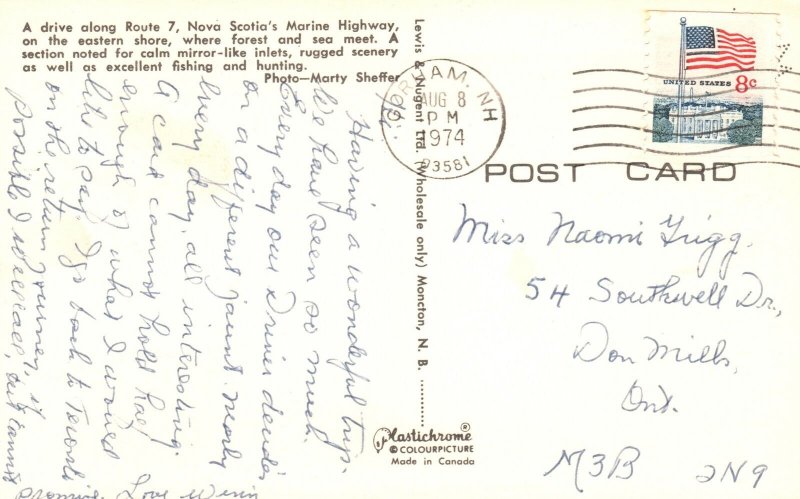 A drive along Route 7, Nova Scotia's Marine Highway,
on the eastern shore, where forest and sea meet. A
section noted for calm mirror-like inlets, rugged scenery
as well as excellent fishing and hunting.
Photo—Marty Sheffer
Having a wonderful trip.
We have seen so much.
Every day our Driver
on a different jaunt. nearly
every day, all interesting.
A card cannot hold half
enough of what I would
like to say. I go back to Toronto
on the return journey, if
possible I will call, but cannot
promise. Love
Lewis & Nugent Ltd. (Wholesale only) Moncton, N. B.
Plastichrome®
© COLOURPICTURE
Made in Canada
AM, NH
AUG 8
PM
1974
03581
UNITED STATES 8c
POST CARD
Miss Naomi Trigg.
54 Southwell Dr.,
Don Mills,
Ont.
M3B 2N9